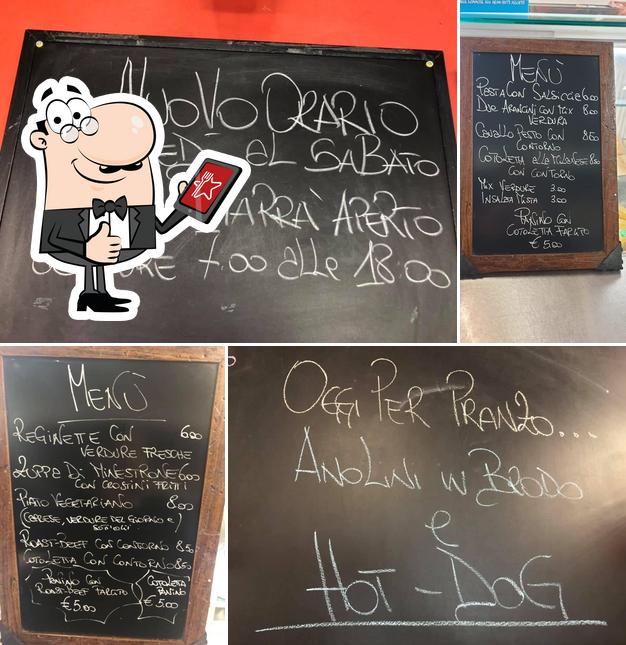 NUOVO ORARIO
AL SABATO
APERTO
7.00 alle 18:00
MENÙ
PASTA CON SALSICCIE 6.00
DUE ARANCINI CON MIX 8.00
VERDURA
CAVALLO PESTO CON 8.50
CONTORNO
COTOLETTA alla MILANESE 8.50
CON CONTORNO
MIX VERDURE 3.00
INSALATA MISTA 3.00
PANINO CON
COTOLETTA FARCITO
€ 5.00
MENÙ
REGINETTE CON 6.00
VERDURE FRESCHE
ZUPPA DI MINESTRONE 6.00
CON CROSTINI FRITTI
PIATO VEGETARIANO 8.00
(CAPRESE, VERDURE DEL GIORNO e
ROAST-BEEF CON CONTORNO 8.50
COTOLETTA CON CONTORNO 8.50
PANINO CON
ROAST-BEEF FARCITO
€ 5.00
COTOLETTA
PANINO
€ 5.00
OGGI PER PRANZO...
ANOLINI IN BRODO
e
HOT-DOG